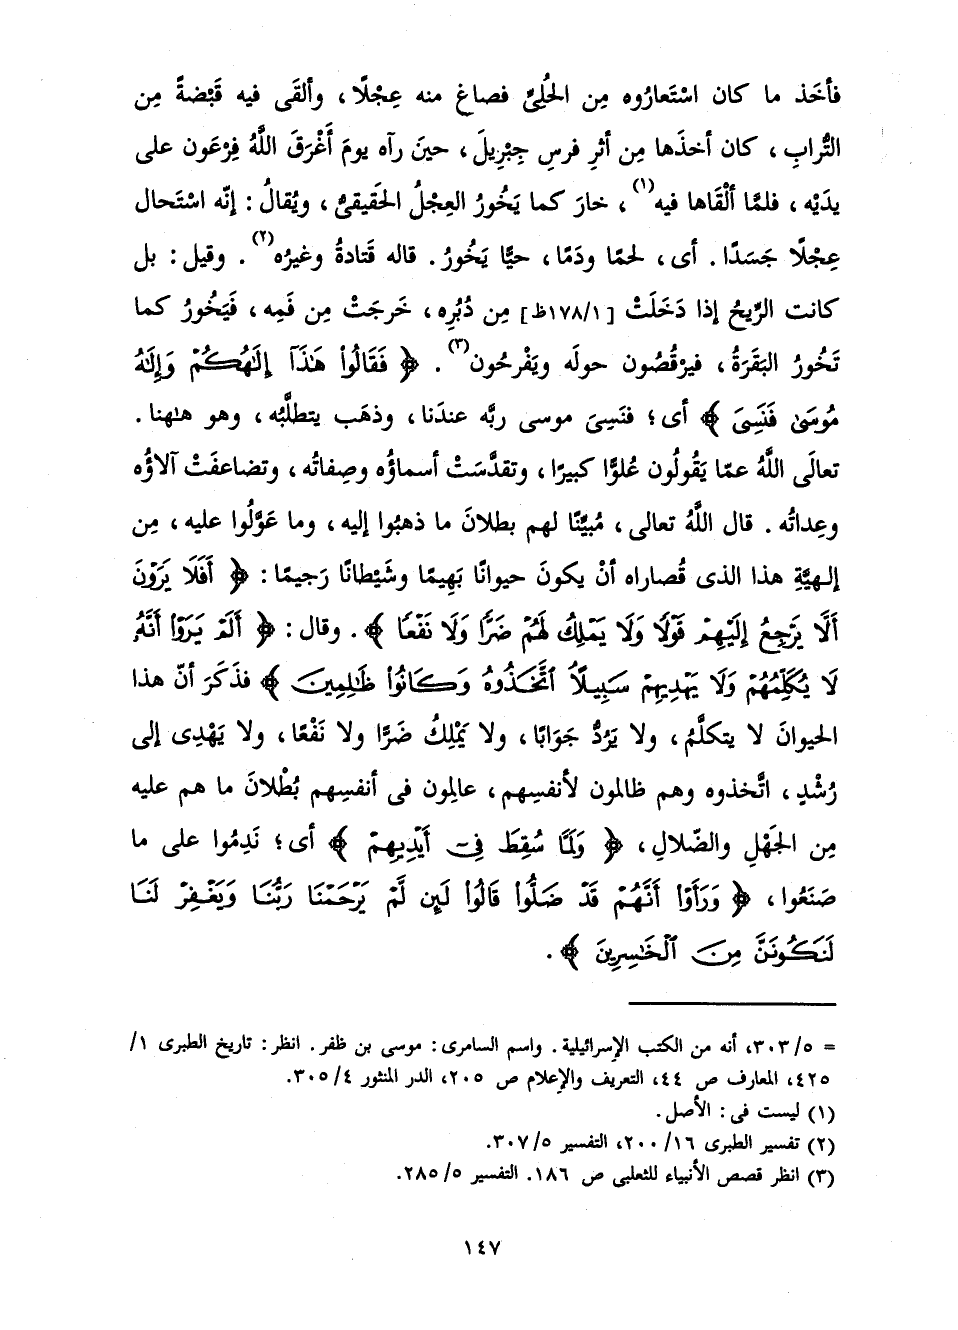 فأخَذ ما كان اسْتَعارُوه مِن الحُلِىِّ فصاغ منه عِجْلًا، وألقَى فيه قَبْضةً مِن
التُّرابِ، كان أخذَها مِن أثرِ فرسِ جِبْرِيلَ، حينَ رآه يومَ أَغْرَقَ اللَّهُ فِرْعَون على
يدَيْه، فلمَّا ألْقَاها فيه(١)، خارَ كما يَخُورُ العِجْلُ الحَقيقىُّ، ويُقالُ: إنّه اسْتَحال
عِجْلًا جَسَدًا. أى، لحمًا ودَمًا، حيًّا يَخُورُ. قاله قَتادةُ وغيرُه(٢). وقيل: بل
كانت الرِّيحُ إذا دَخَلَتْ [١٧٨/١ظ] مِن دُبُرِه، خَرجَتْ مِن فَمِه، فَيَخُورُ كما
تَخُورُ البَقَرَةُ، فيرْقُصُون حولَه ويَفْرحُون(٣). ﴿ فَقَالُواْ هَٰذَآ إِلَٰهُكُمْ وَإِلَٰهُ
مُوسَىٰ فَنَسِىَ ﴾ أى؛ فنَسِىَ موسى ربَّه عندَنا، وذهَب يتطلَّبُه، وهو هٰهنا.
تعالَى اللَّهُ عمّا يَقُولُون عُلوًّا كبيرًا، وتقدَّسَتْ أسماؤُه وصِفاتُه، وتضاعفَتْ آلاؤُه
وعِداتُه. قال اللَّهُ تعالى، مُبيِّنًا لهم بطلانَ ما ذهبُوا إليه، وما عَوَّلُوا عليه، مِن
إلهيَّةِ هذا الذى قُصاراه أنْ يكونَ حيوانًا بَهِيمًا وشَيْطانًا رَجيمًا: ﴿ أَفَلَا يَرَوْنَ
أَلَّا يَرْجِعُ إِلَيْهِمْ قَوْلًا وَلَا يَمْلِكُ لَهُمْ ضَرًّا وَلَا نَفْعًا ﴾. وقال: ﴿ أَلَمْ يَرَوْاْ أَنَّهُۥ
لَا يُكَلِّمُهُمْ وَلَا يَهْدِيهِمْ سَبِيلًا ٱتَّخَذُوهُ وَكَانُواْ ظَٰلِمِينَ ﴾ فذَكَرَ أنّ هذا
الحيوانَ لا يتكلَّمُ، ولا يَرُدُّ جَوَابًا، ولا يَمْلِكُ ضَرًّا ولا نَفْعًا، ولا يَهْدِى إلى
رُشْدٍ، اتَّخذوه وهم ظالمون لأنفسِهم، عالِمون فى أنفسِهم بُطْلانَ ما هم عليه
مِن الجَهْلِ والضّلالِ، ﴿ وَلَمَّا سُقِطَ فِىٓ أَيْدِيهِمْ ﴾ أى؛ نَدِمُوا على ما
صَنَعُوا، ﴿ وَرَأَوْاْ أَنَّهُمْ قَدْ ضَلُّواْ قَالُواْ لَئِن لَّمْ يَرْحَمْنَا رَبُّنَا وَيَغْفِرْ لَنَا
لَنَكُونَنَّ مِنَ ٱلْخَٰسِرِينَ ﴾.
= ٣٠٣/٥، أنه من الكتب الإسرائيلية. واسم السامرى: موسى بن ظفر. انظر: تاريخ الطبرى ١/
٤٢٥، المعارف ص ٤٤، التعريف والإعلام ص ٢٠٥، الدر المنثور ٣٠٥/٤.
(١) ليست فى: الأصل.
(٢) تفسير الطبرى ٢٠٠/١٦، التفسير ٣٠٧/٥.
(٣) انظر قصص الأنبياء للثعلبى ص ١٨٦. التفسير ٢٨٥/٥.
١٤٧